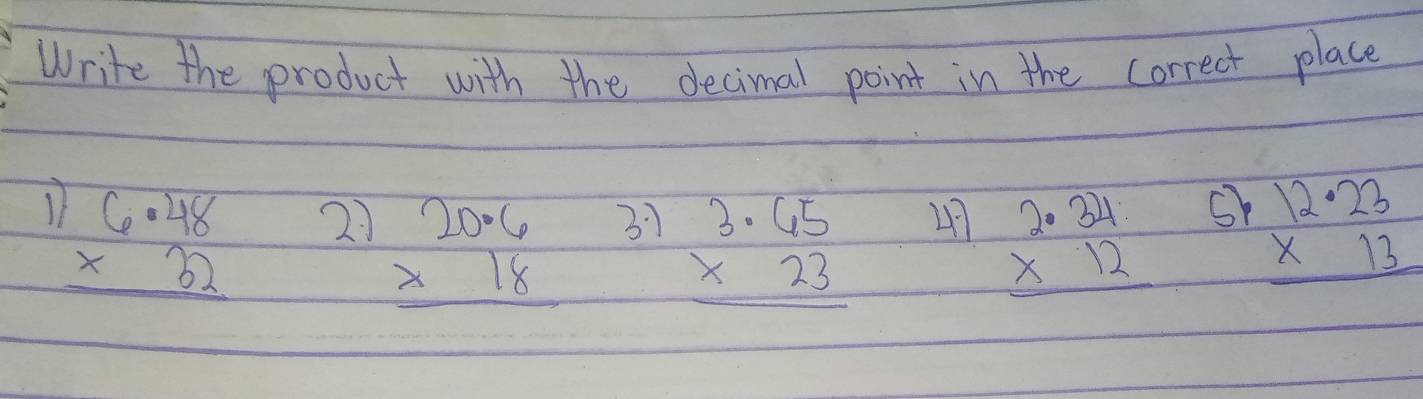 Write the product with the decimal point in the correct place
1) 6.48 2.) 20.6 3.) 3.65 4.) 2.34 5) 12.23
x 32 x 18 x 23 x 12 x 13